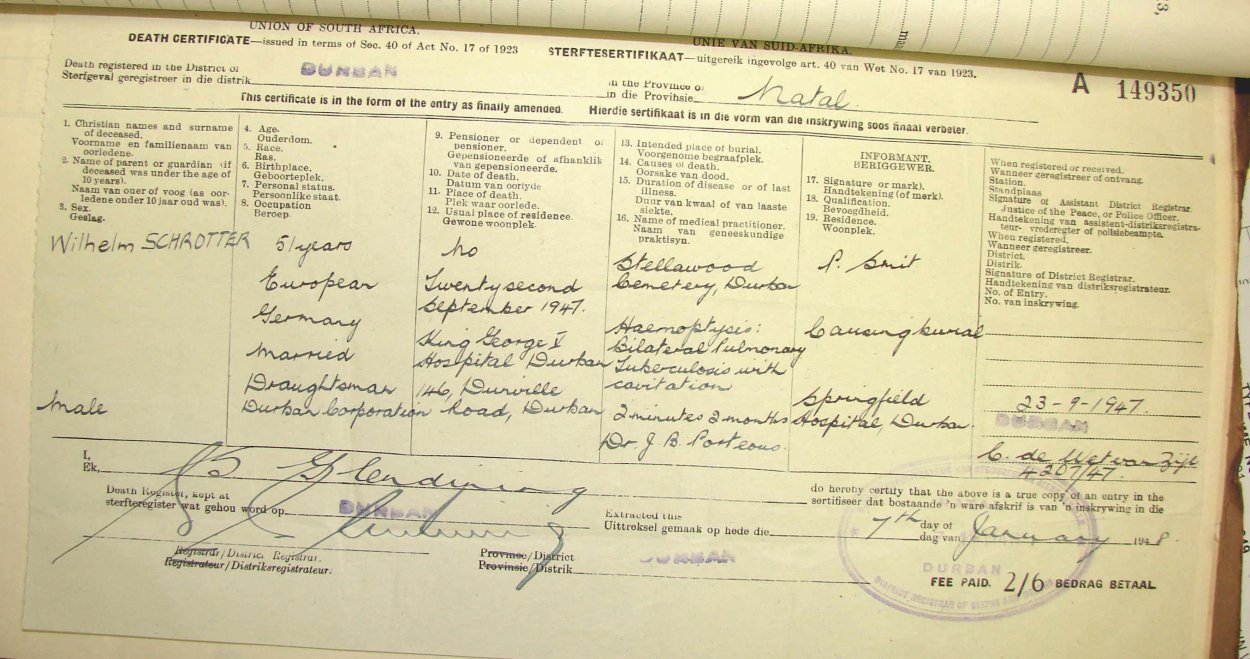 UNION OF SOUTH AFRICA.
DEATH CERTIFICATE—issued in terms of Sec. 40 of Act No. 17 of 1923
UNIE VAN SUID-AFRIKA.
STERFTESERTIFIKAAT—uitgereik ingevolge art. 40 van Wet No. 17 van 1923.
Death registered in the District of
Sterfgeval geregistreer in die distrik
DURBAN
in the Province of
in die Provinsie
Natal
A 149350
This certificate is in the form of the entry as finally amended. Hierdie sertifikaat is in die vorm van die inskrywing soos finaal verbeter.
1. Christian names and surname
of deceased.
Voorname en familienaam van
oorledene.
2. Name of parent or guardian (if
deceased was under the age of
10 years).
Naam van ouer of voog (as oor-
ledene onder 10 jaar oud was).
3. Sex.
Geslag.
4. Age.
Ouderdom.
5. Race.
Ras.
6. Birthplace.
Geboorteplek.
7. Personal status.
Persoonlike staat.
8. Occupation
Beroep.
9. Pensioner or dependent of
pensioner.
Gepensioneerde of afhanklik
van gepensioneerde.
10. Date of death.
Datum van oorlyde
11. Place of death.
Plek waar oorlede.
12. Usual place of residence.
Gewone woonplek.
13. Intended place of burial.
Voorgenome begraafplek.
14. Causes of death.
Oorsake van dood.
15. Duration of disease or of last
illness.
Duur van kwaal of van laaste
siekte.
16. Name of medical practitioner.
Naam van geneeskundige
praktisyn.
INFORMANT.
BERIGGEWER.
17. Signature or mark).
Handtekening (of merk).
18. Qualification.
Bevoegdheid.
19. Residence.
Woonplek.
When registered or received.
Wanneer geregistreer of ontvang.
Station.
Standplaas
Signature of Assistant District Registrar.
Justice of the Peace, or Police Officer.
Handtekening van assistent-distriksregistra-
teur- vrederegter of polisiebeampte.
When registered.
Wanneer geregistreer.
District.
Distrik.
Signature of District Registrar.
Handtekening van distriksregistrateur.
No. of Entry.
No. van inskrywing.
Wilhelm SCHROTTER
Male
51 years
European
Germany
Married
Draughtsman
Durban Corporation
No
Twenty second
September 1947.
King George V
Hospital Durban
146, Durville
Road, Durban
Stellawood
Cemetery, Durban
Haemoptysis:
Bilateral Pulmonary
Tuberculosis with
cavitation
2 minutes 2 months
Dr J. B. Porteous.
P. Smit
Causing burial
Springfield
Hospital, Durban.
23-9-1947.
DURBAN
C. de Wet van Zijl
4207/47.
I,
Ek,
Glendining
do hereby certify that the above is a true copy of an entry in the
sertifiseer dat bostaande 'n ware afskrif van 'n inskrywing in die
Death Register, kept at
sterfteregister wat gehou word op
DURBAN
Extracted this
Uittreksel gemaak op hede die
7th
day of
dag van
January
1948.
Registrar/District Registrar.
Registrateur/Distriksregistrateur.
Province/District
Provinsie/Distrik
DURBAN
DURBAN
DISTRICT REGISTRAR OF BIRTHS AND DEATHS
FEE PAID. 2/6 BEDRAG BETAAL